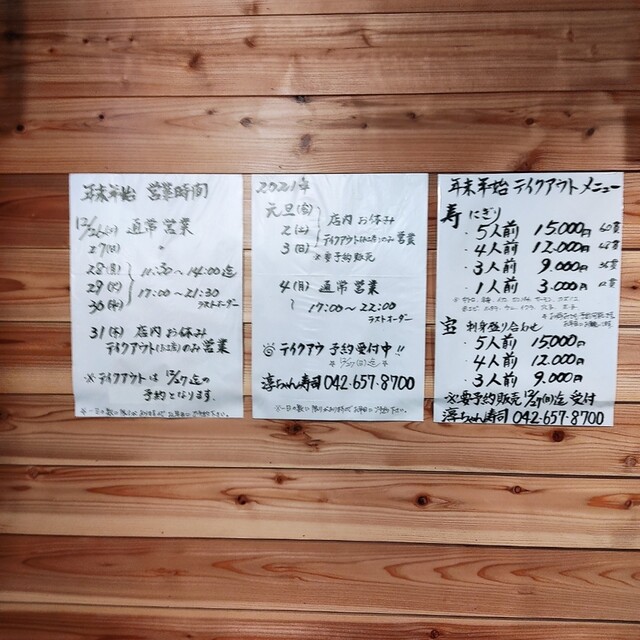 年末年始 営業時間
12/26(土) 通常営業
27(日) 〃
28(月)
29(火)
30(水)
11:30〜14:00迄
17:00〜21:30
ラストオーダー
31(木) 店内お休み
テイクアウト(お土産)のみ営業
※テイクアウトは 12/27迄の
予約となります。
2021年
元旦(金)
2(土)
3(日)
店内お休み
テイクアウト(お土産)のみ営業
※要予約販売
4(月) 通常営業
17:00〜22:00
ラストオーダー
◎テイクアウ予約受付中!!
*12/27(日)迄*
淳ちゃん寿司 042-657-8700
年末年始 テイクアウトメニュー
寿 にぎり
・5人前 15.000円 60貫
・4人前 12.000円 48貫
・3人前 9.000円 36貫
・1人前 3.000円 12貫
宝 刺身盛り合わせ
・5人前 15000円
・4人前 12.000円
・3人前 9.000円
※要予約販売 12/27(日)迄受付
淳ちゃん寿司 042-657-8700